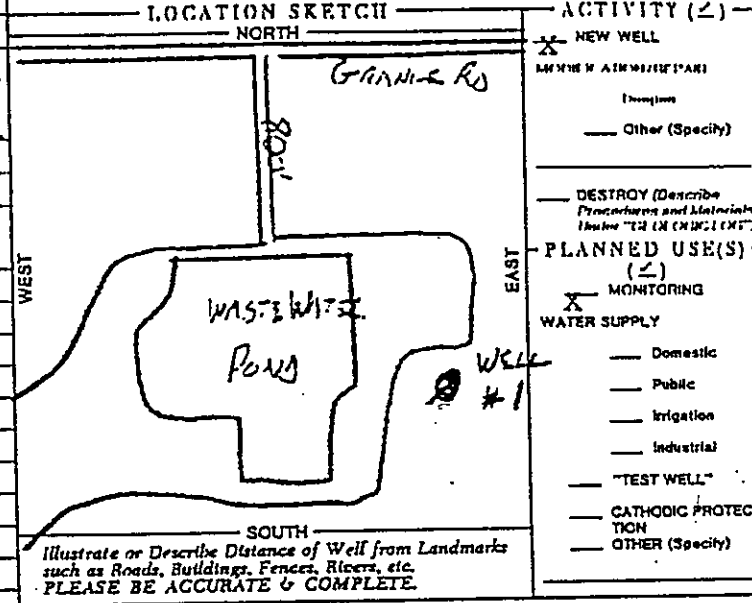 LOCATION SKETCH
NORTH
GRANIE RD
WEST
EAST
WASTE WATE
POND
WELL
#1
SOUTH
Illustrate or Describe Distance of Well from Landmarks
such as Roads, Buildings, Fences, Rivers, etc.
PLEASE BE ACCURATE & COMPLETE.
ACTIVITY (✓)
X NEW WELL
Other (Specify)
DESTROY (Describe
Procedures and Materials
Under
PLANNED USE(S)
(✓)
X MONITORING
WATER SUPPLY
Domestic
Public
Irrigation
Industrial
"TEST WELL"
CATHODIC PROTEC
TION
OTHER (Specify)